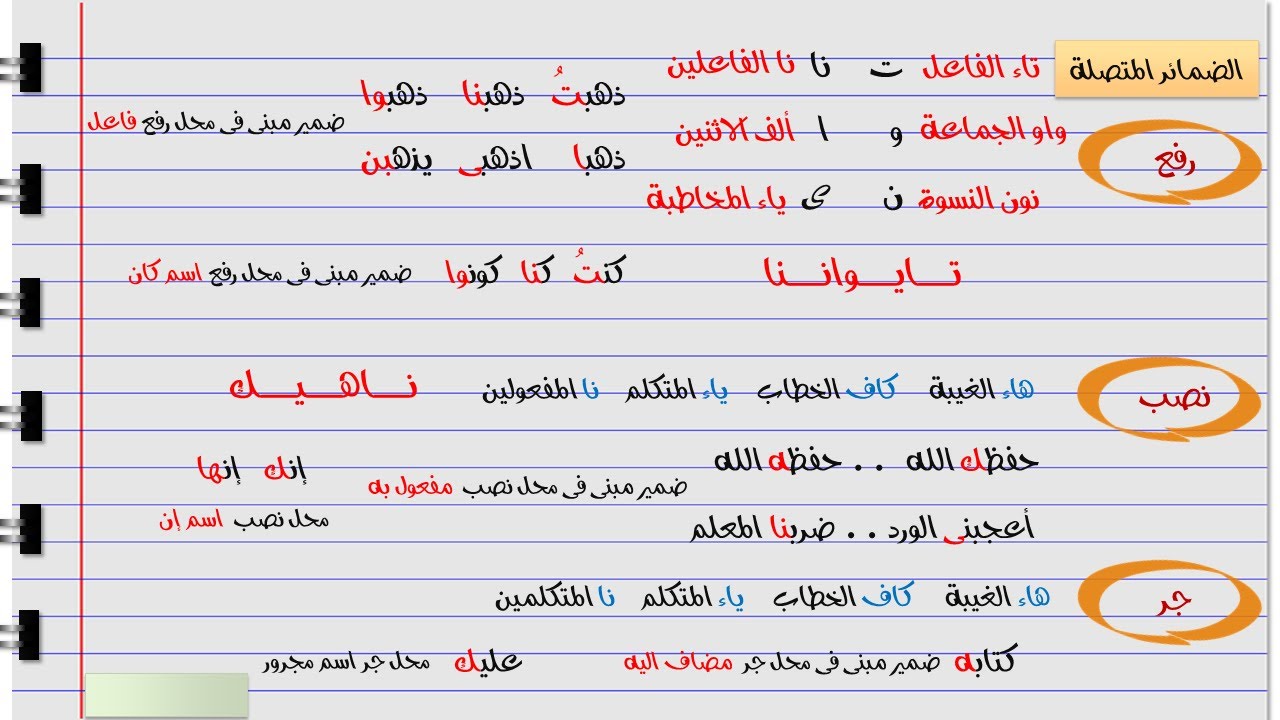 الضمائر المتصلة
رفع
تاء الفاعل ت نا نا الفاعلين
واو الجماعة و ا ألف الاثنين
نون النسوة ن ى ياء المخاطبة
ذهبتُ ذهبنا ذهبوا
ذهبا اذهبى يذهبن
ضمير مبنى فى محل رفع فاعل
تـــايـــوانـــنا
كنتُ كنا كونوا ضمير مبنى فى محل رفع اسم كان
نصب
هاء الغيبة كاف الخطاب ياء المتكلم نا المفعولين نـــاهـــيـــك
حفظك الله . . حفظه الله
أعجبنى الورد . . ضربنا المعلم
ضمير مبنى فى محل نصب مفعول به
إنك إنها
محل نصب اسم إن
جر
هاء الغيبة كاف الخطاب ياء المتكلم نا المتكلمين
كتابه ضمير مبنى فى محل جر مضاف اليه عليك محل جر اسم مجرور